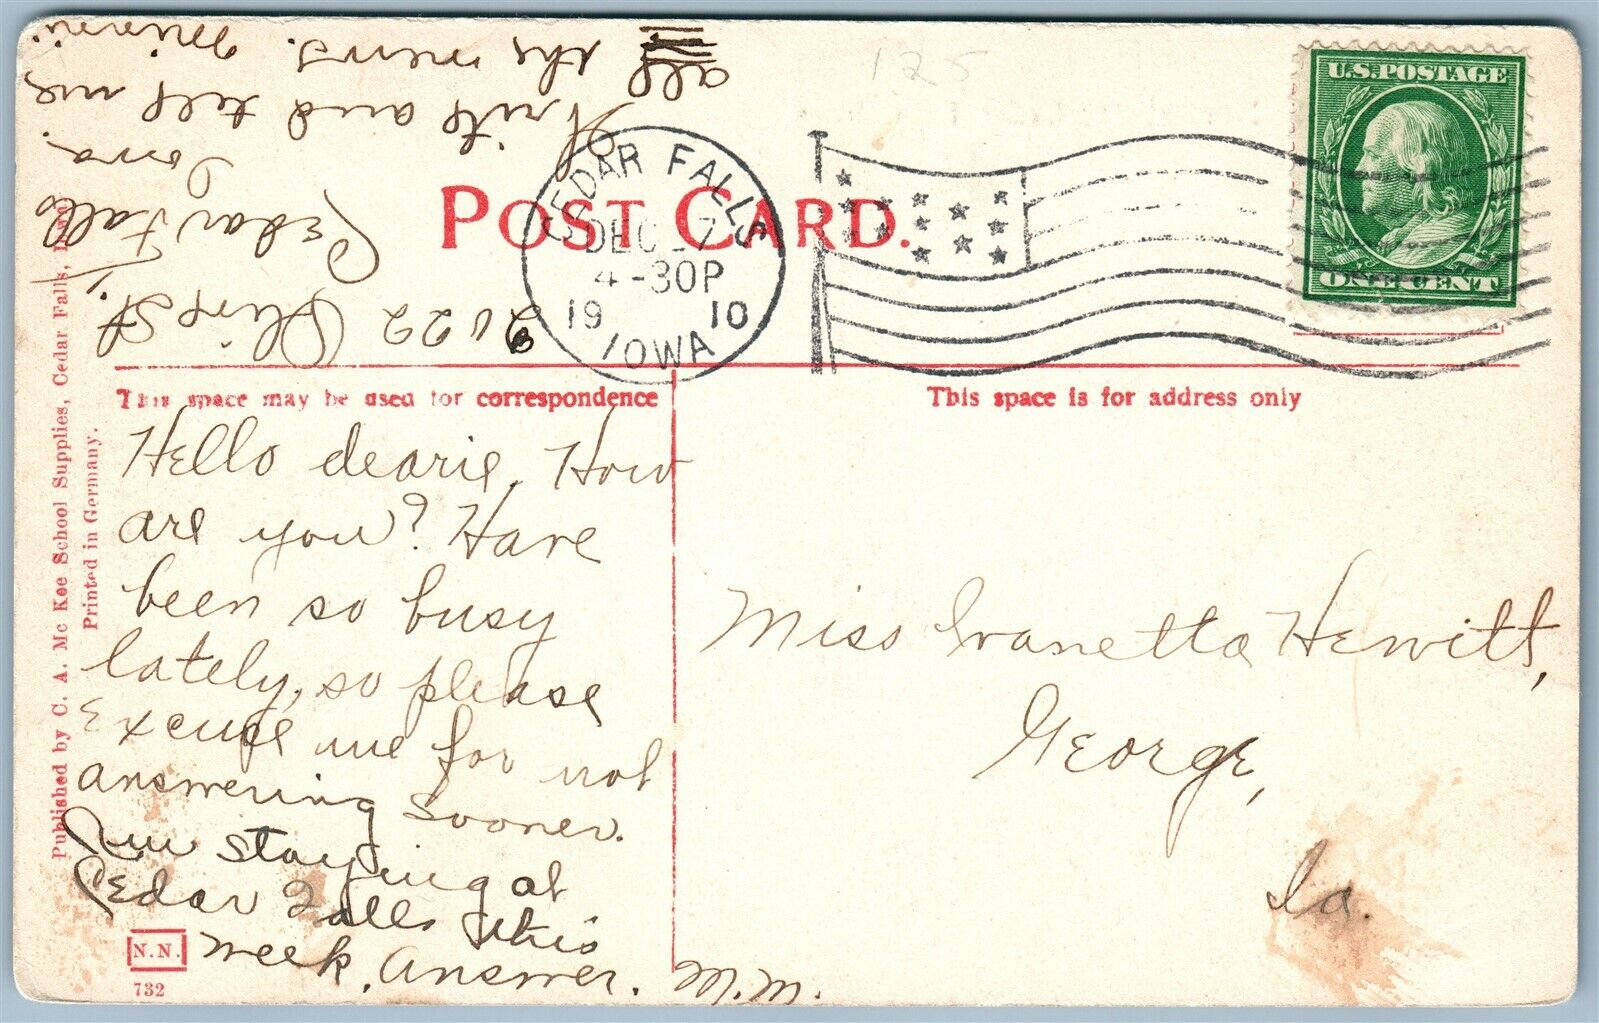 125
U.S. POSTAGE
ONE CENT
CEDAR FALLS
DEC 27
4-30P
19 10
IOWA
POST CARD.
This space may be used for correspondence
This space is for address only
Hello dearie, How
are you? Have
been so busy
lately, so please
Excuse me for not
answering sooner.
Am staying at
Cedar Falls this
week. Answer. M.M.
Miss Ivanetta Hewitt,
George,
Ia.
2022 Olive St.,
Cedar Falls
Iowa.
Write and tell me
all the news.
Minni
Published by C. A. Mc Kee School Supplies, Cedar Falls, Iowa
Printed in Germany.
N.N.
732